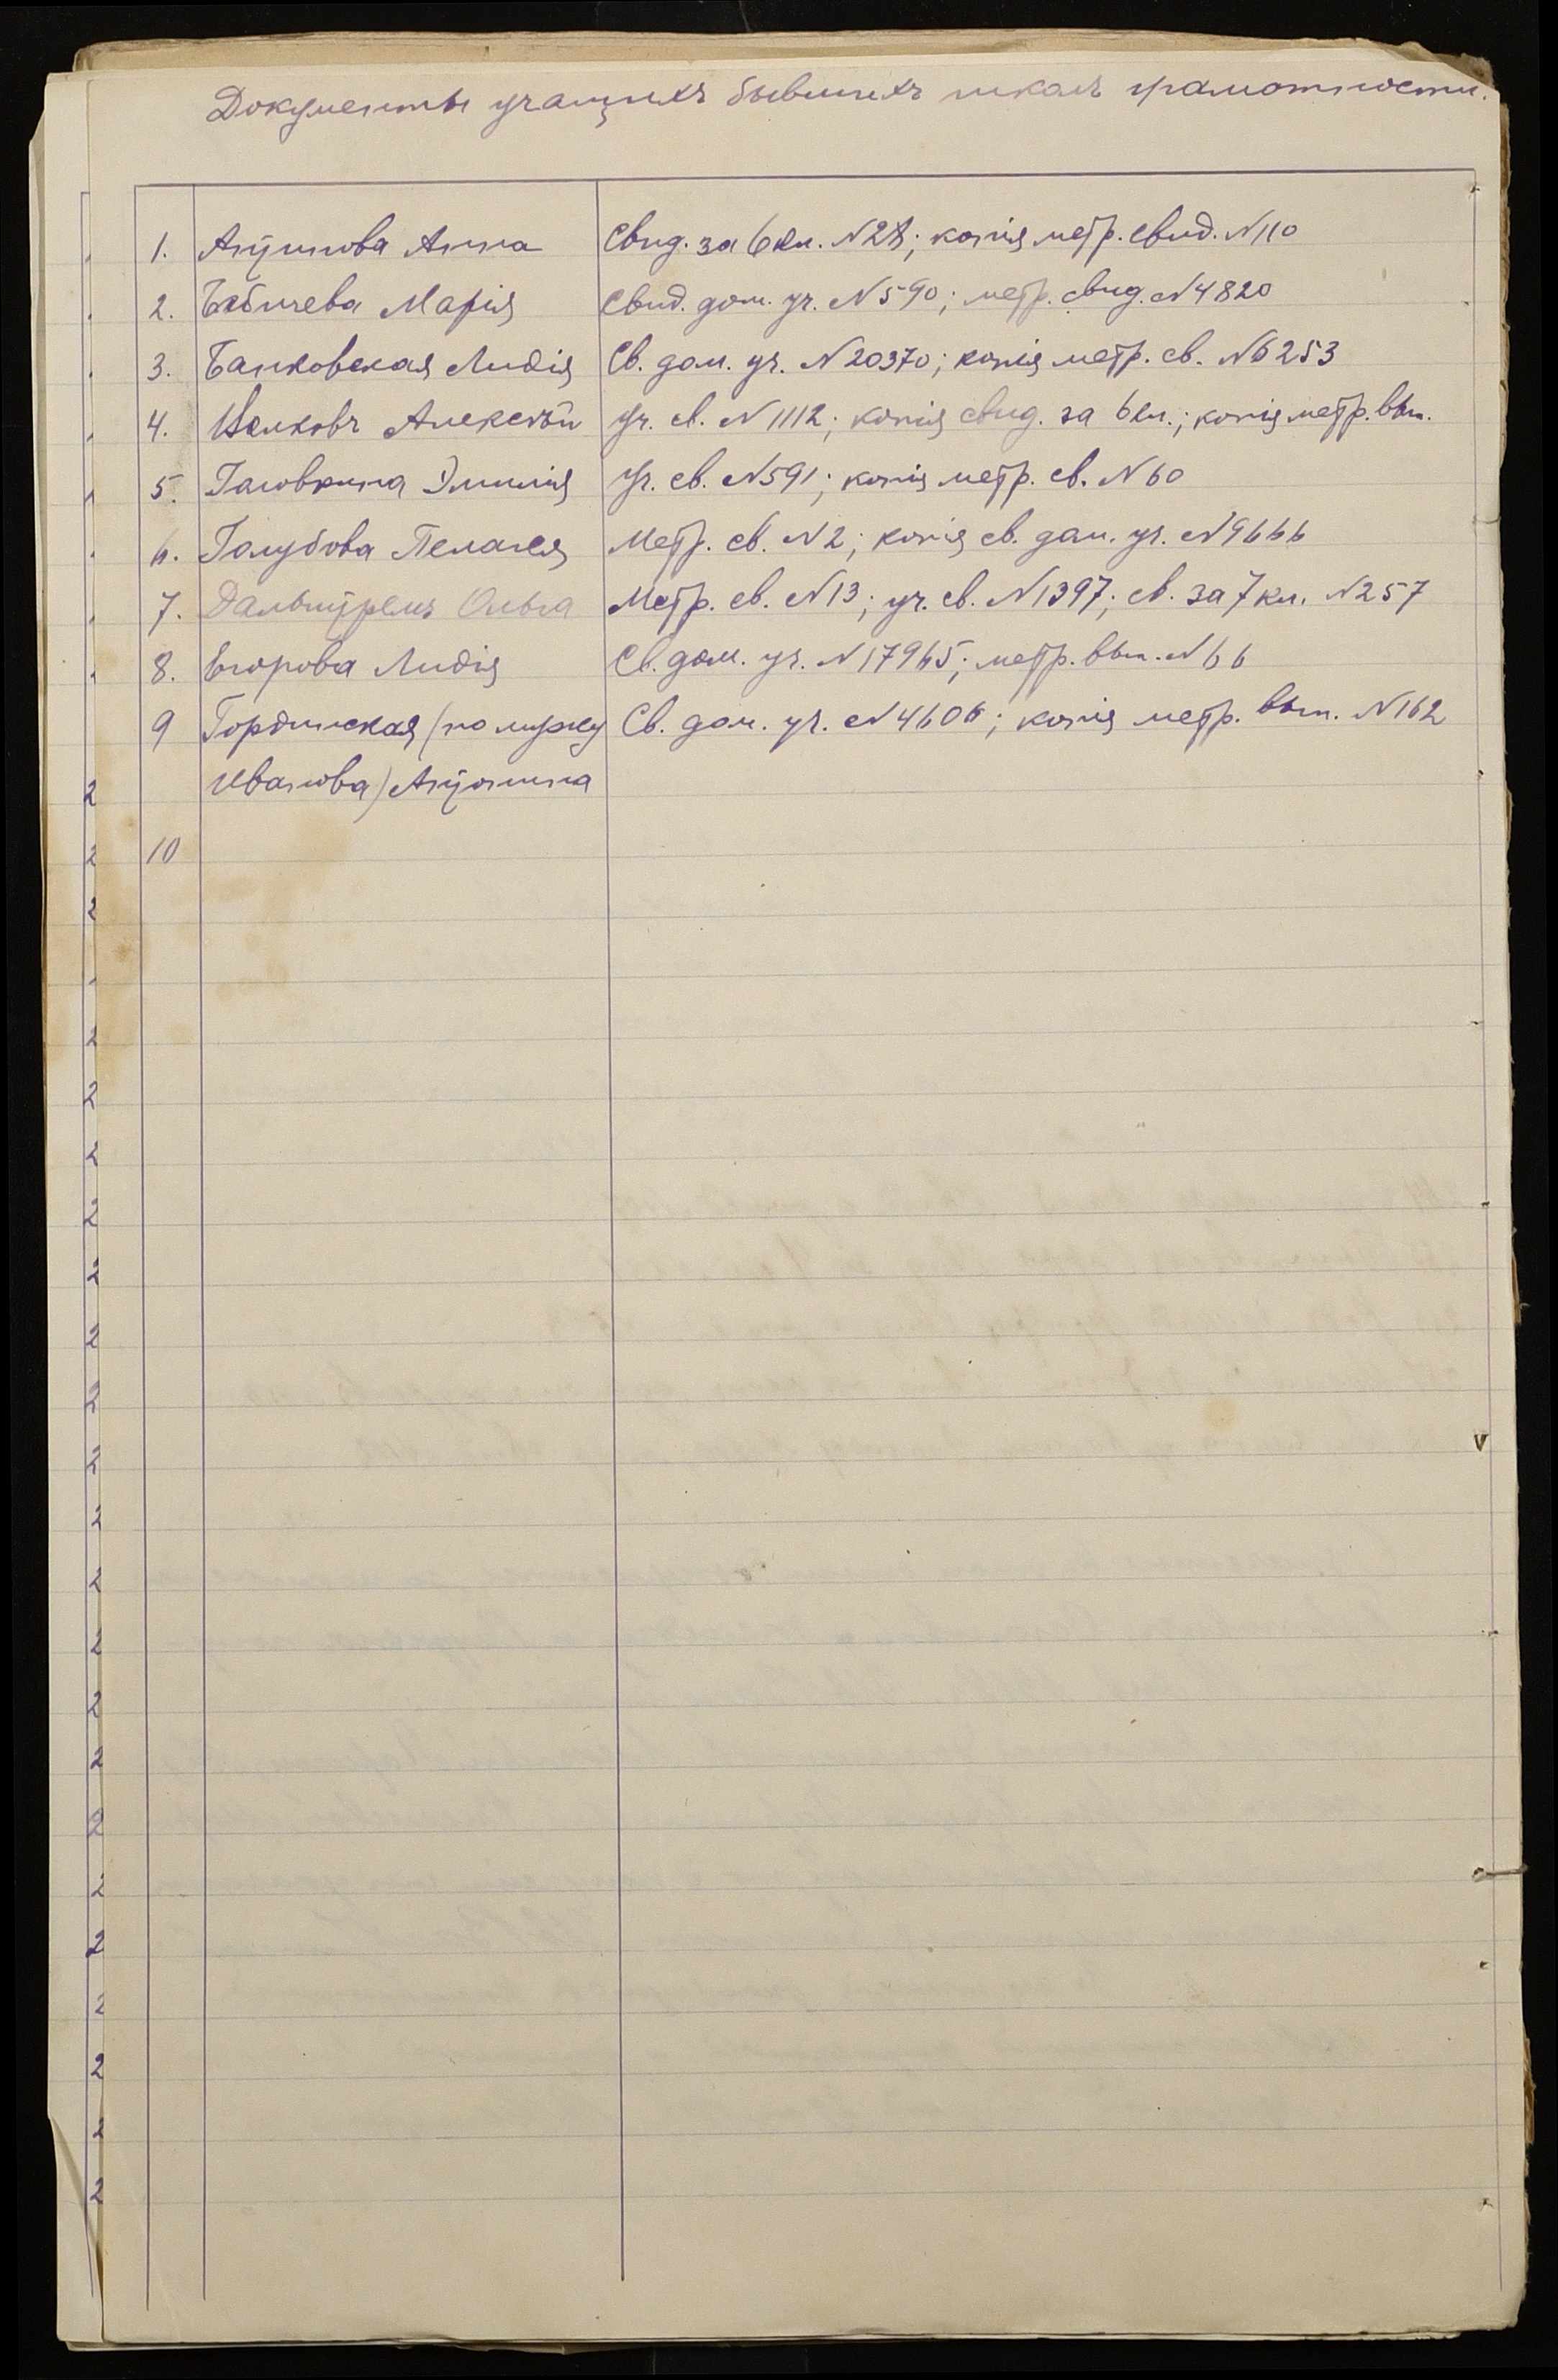 Документы учащихъ бывшихъ школъ грамотности.
1. Антипова Анна Свид. за 6 кл. N 28; копія метр. свид. N 110
2. Бабичева Марія Свид. дом. уч. N 590; метр. свид. N 4820
3. Банковская Лидія Св. дом. уч. N 20370; копія метр. св. N 6253
4. Волковъ Алексѣй Уч. св. N 1112; копія свид. за 6 кл.; копія метр. вып.
5. Головкина Эмилія Уч. св. N 591; копія метр. св. N 60
6. Голубова Пелагея Метр. св. N 2; копія св. дом. уч. N 9666
7. Ольга Метр. св. N 13; уч. св. N 1397; св. за 7 кл. N 257
8. Егорова Лидія Св. дом. уч. N 17965; метр. вып. N 66
9 Гординская (по мужу Св. дом. уч. N 4606; копія метр. вып. N 162
Иванова) Антонина
10